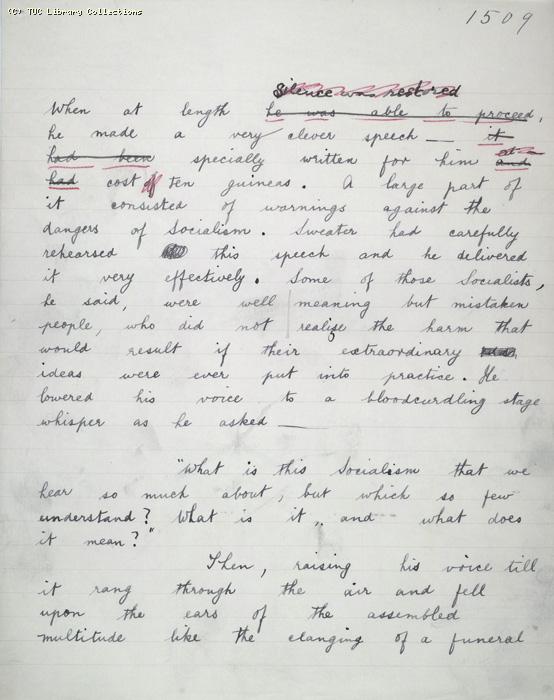 (C) TUC Library Collections
1509
Silence was restored
When at length he was able to proceed,
he made a very clever speech — it
had been specially written for him and
had cost ten guineas. A large part of
it consisted of warnings against the
dangers of Socialism. Sweater had carefully
rehearsed this speech and he delivered
it very effectively. Some of those Socialists,
he said, were well meaning but mistaken
people, who did not realise the harm that
would result if their extraordinary
ideas were ever put into practice. He
lowered his voice to a bloodcurdling stage
whisper as he asked —
"What is this Socialism that we
hear so much about, but which so few
understand? What is it, and what does
it mean?"
Then, raising his voice till
it rang through the air and fell
upon the ears of the assembled
multitude like the clanging of a funeral